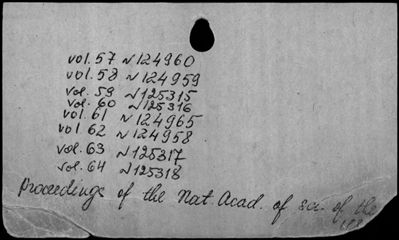 vol. 57 N 124960
vol. 58 N 124959
vol. 59 N 125315
vol. 60 N 125316
vol. 61 N 124965
vol. 62 N 124958
vol. 63 N 125317
vol. 64 N 125318
Proceedings of the Nat. Acad. of sci. of the